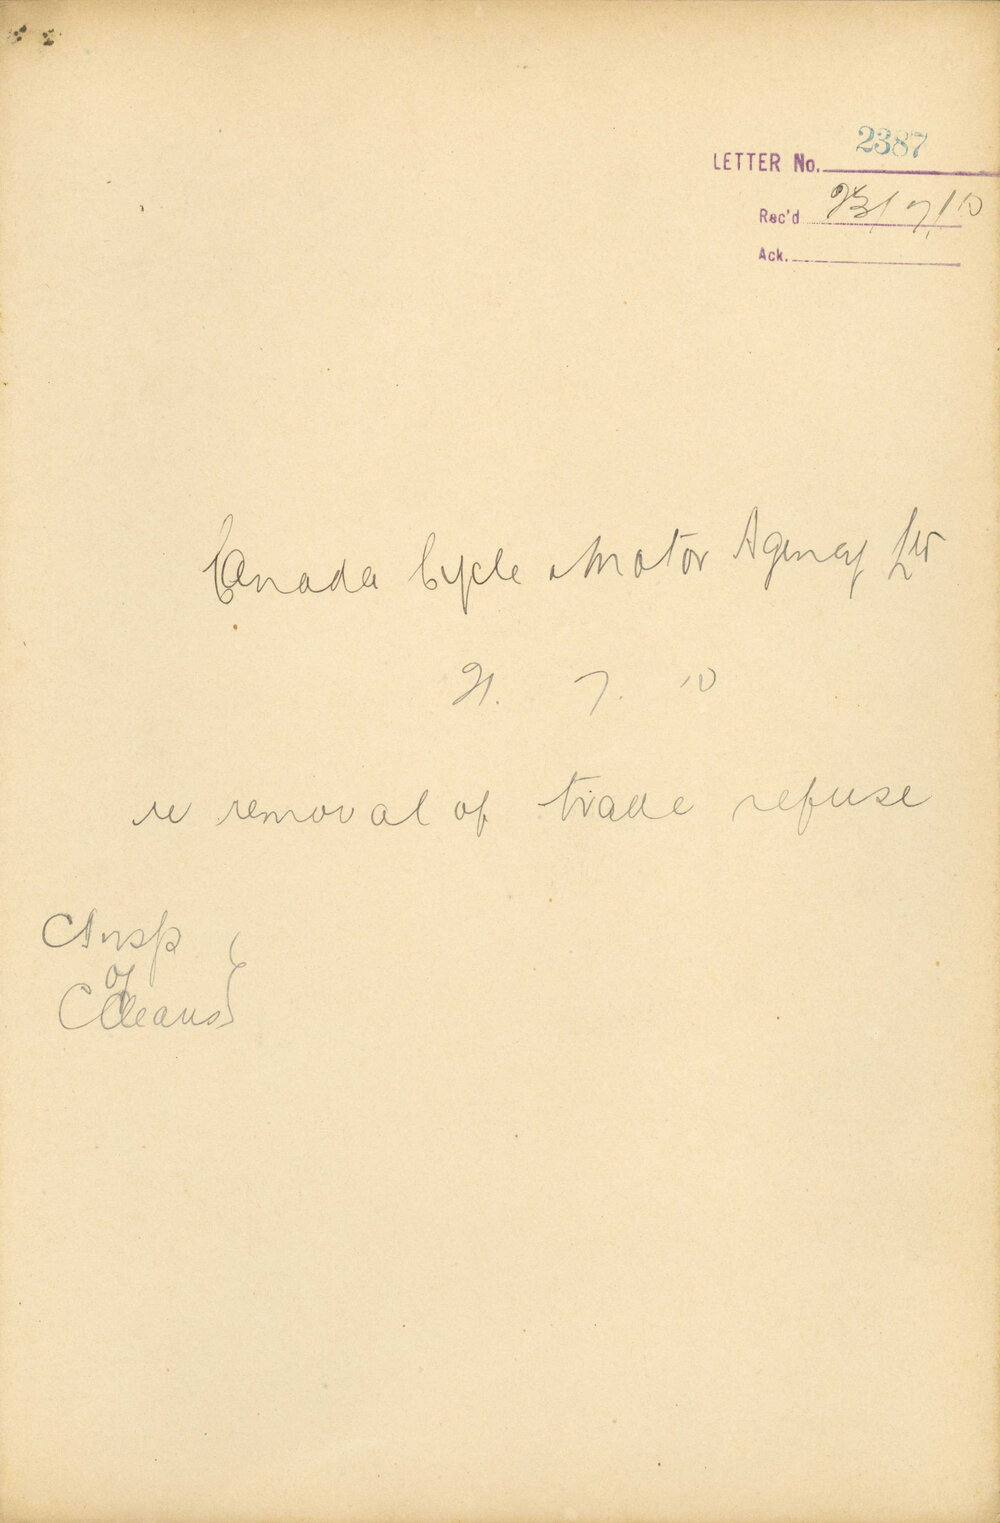 LETTER No. 2387
Rec'd 23/7/10
Ack.
Canada Cycle & Motor Agency Ltd
21. 7. 10
re removal of trade refuse
C Insp
of
C Cleans